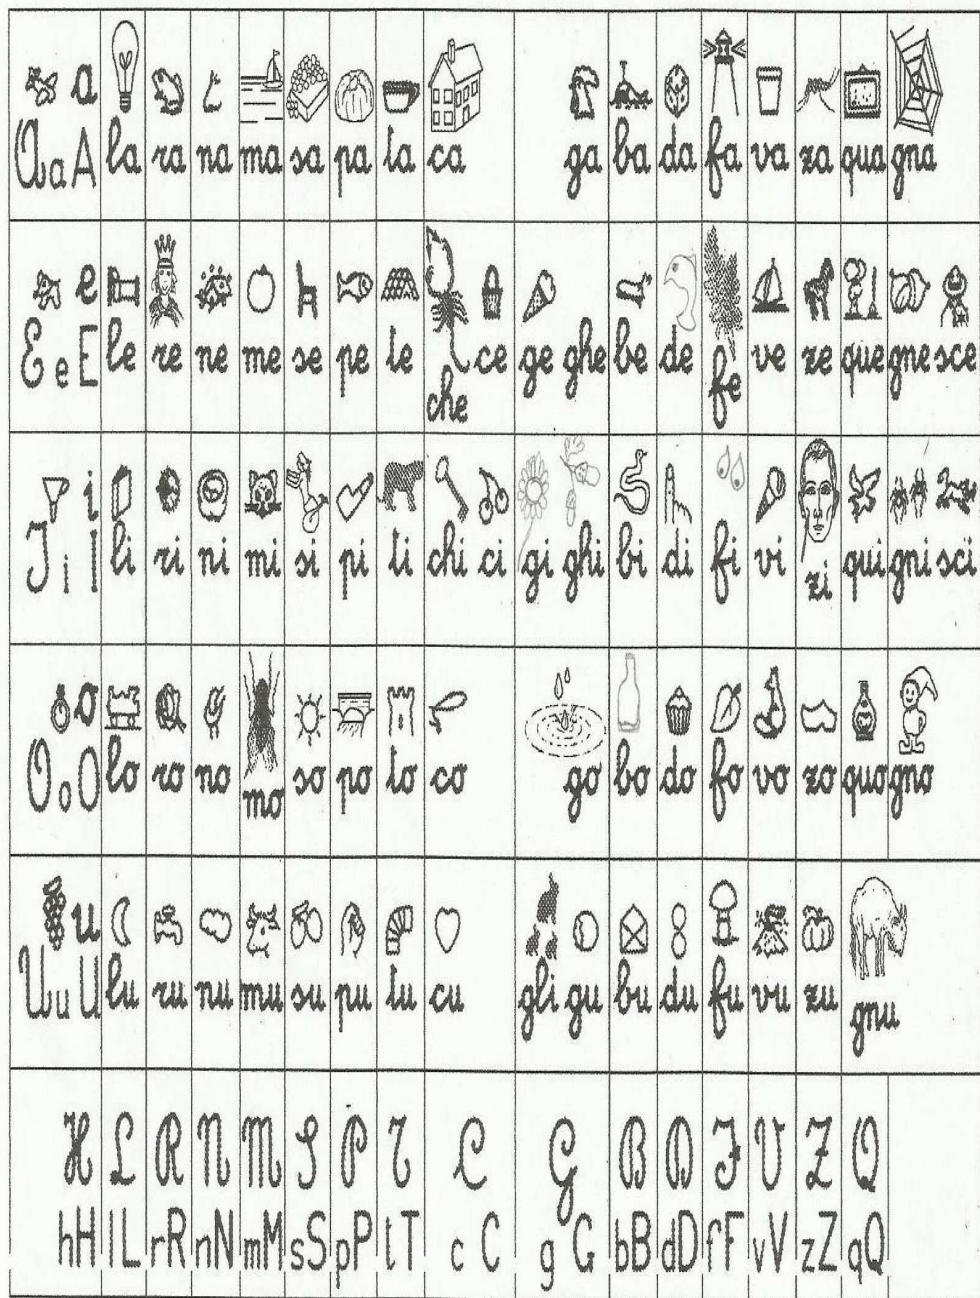 a
a a A la ra na ma sa pa ta ca ga ba da fa va za qua gna
e
E e E le re ne me se pe te che ce ge ghe be de fe ve ze que gne sce
i
I i I li ri ni mi si pi ti chi ci gi ghi bi di fi vi zi qui gni sci
o
O o O lo ro no mo so po to co go bo do fo vo zo quo gno
u
U u U lu ru nu mu su pu tu cu gli gu bu du fu vu zu gnu
H L R N M S P T C G B D F V Z Q
hH lL rR nN mM sS pP tT c C g G bB dD fF vV zZ qQ